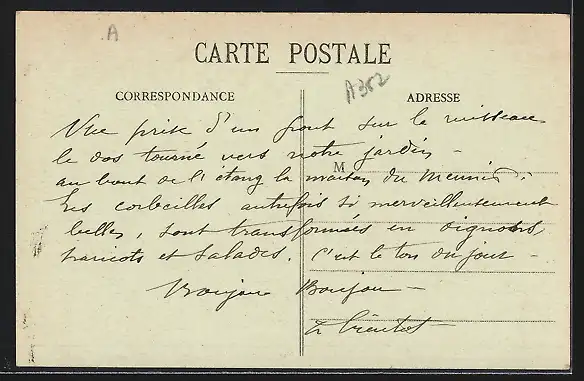 A
CARTE POSTALE
A362
CORRESPONDANCE
ADRESSE
M
Vue prise d'un pont sur le ruisseau
le dos tourné vers notre jardin -
au bout de l'étang la maison du Meunier.
Les corbeilles autrefois si merveilleusement
belles, sont transformées en oignons,
haricots et salades. C'est le ton du jour -
Bonjour Bonjour -
à bientot -